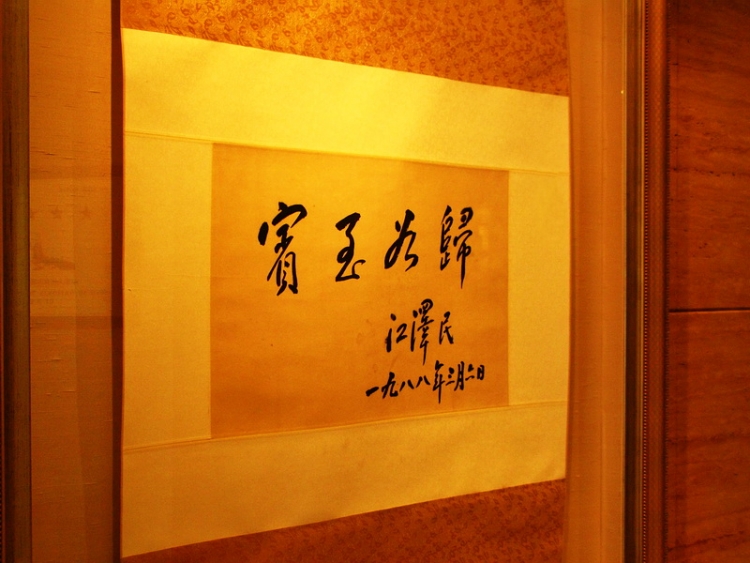 賓至如歸
江澤民
一九八八年三月六日